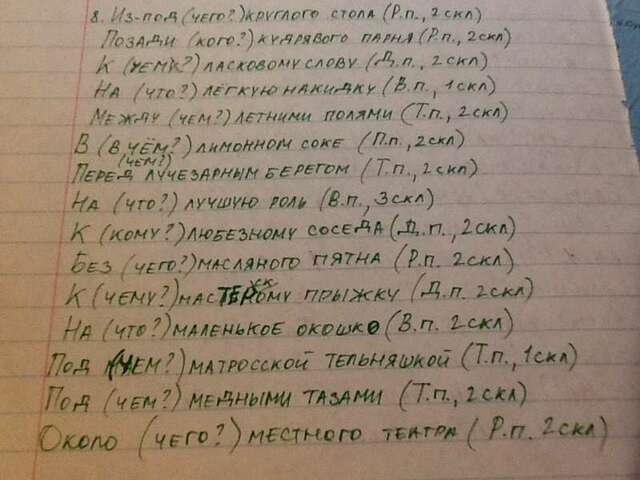 8. Из-под (чего?) круглого стола (Р.п., 2скл)
Позади (кого?) кудрявого парня (Р.п., 2скл)
К (чему?) ласковому слову (Д.п., 2скл)
На (что?) лёгкую накидку (В.п., 1скл)
Между (чем?) летними полями (Т.п., 2скл)
В (в чём?) лимонном соке (П.п., 2скл)
Перед (чем?) лучезарным берегом (Т.п., 2скл)
На (что?) лучшую роль (В.п., 3скл)
К (кому?) любезному соседа (Д.п., 2скл)
Без (чего?) масляного пятна (Р.п. 2скл)
К (чему?) мастерскому прыжку (Д.п. 2скл)
На (что?) маленькое окошко (В.п. 2скл)
Под (чем?) матросской тельняшкой (Т.п., 1скл)
Под (чем?) медными тазами (Т.п., 2скл)
Около (чего?) местного театра (Р.п. 2скл)